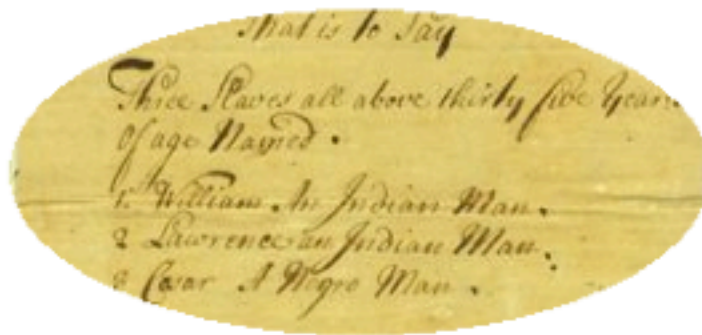 that is to say
Three Slaves all above thirty five Years
Of age Named.
1. William An Indian Man.
2 Lawrence an Indian Man.
3 Cesar A Negro Man.